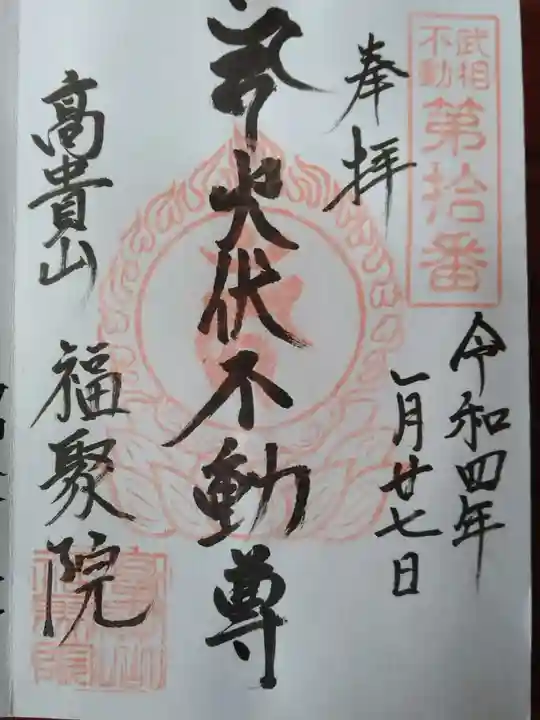 武相
不動
第拾番
奉拝
令和四年
一月廿七日
火伏不動尊
高貴山 福聚院